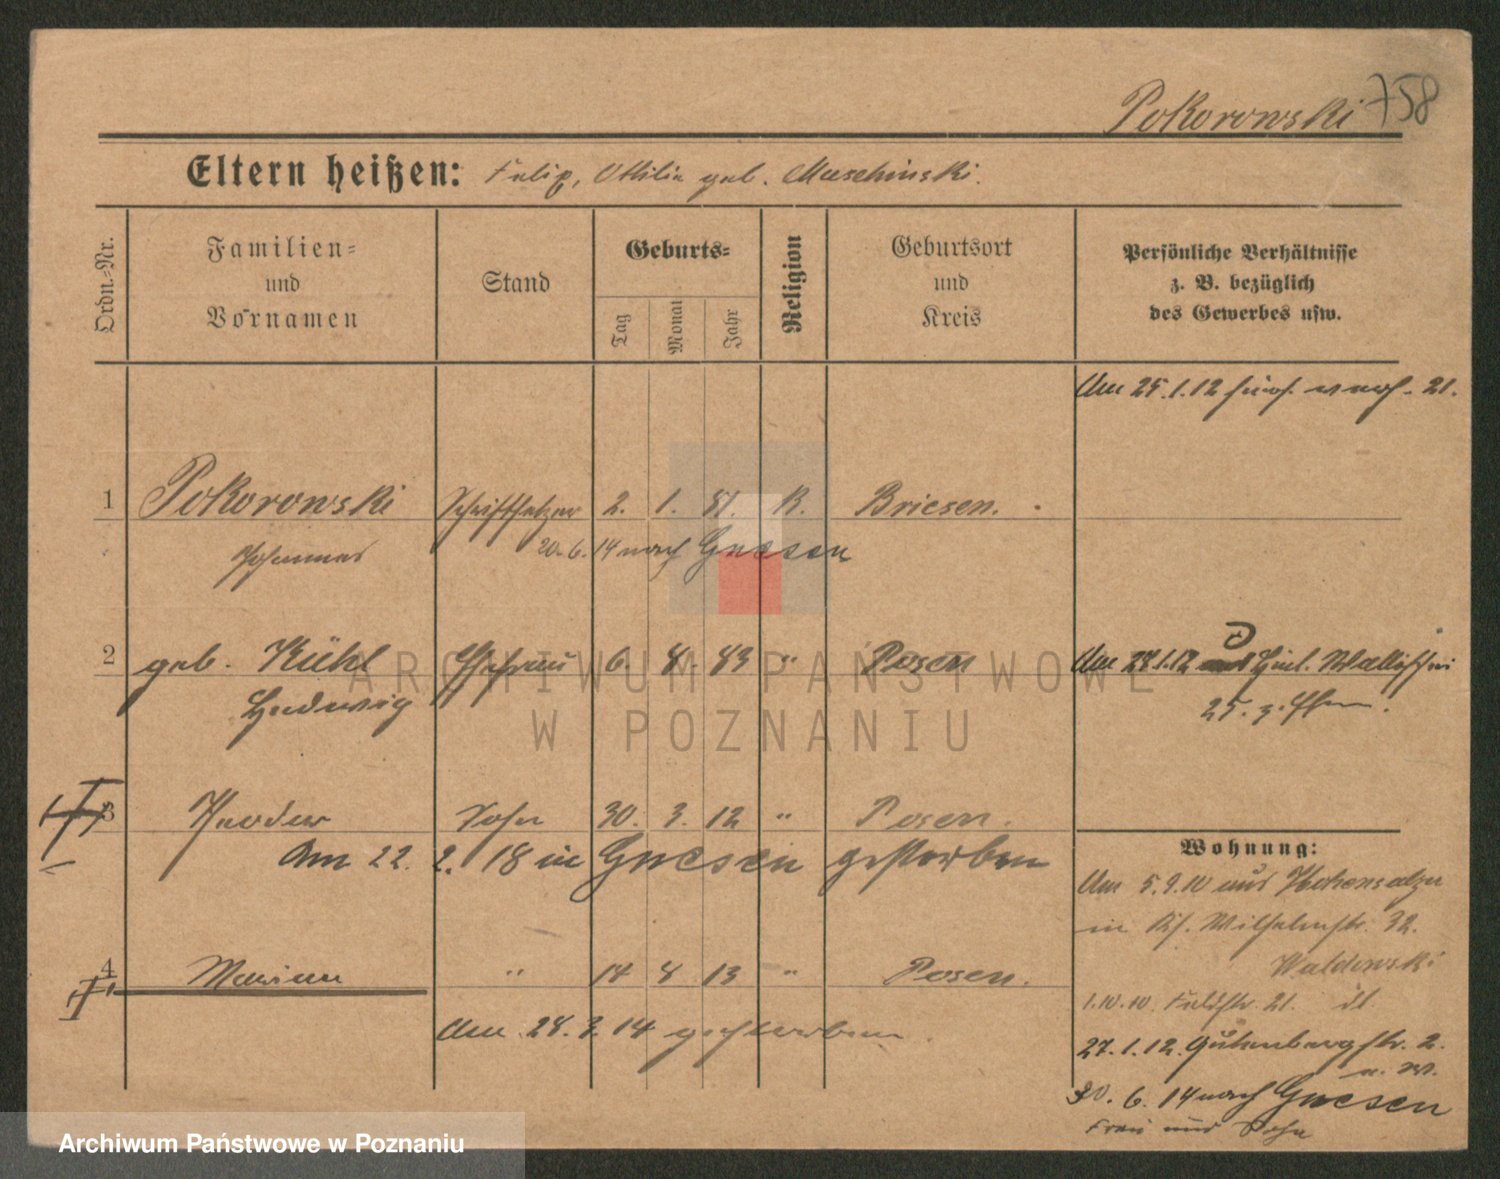 Pokorowski 758
Eltern heißen: Felix, Ottilie geb. Muschinski.
Ordn.-Nr.
Familien- und Vornamen
Stand
Geburts-
Tag
Monat
Jahr
Religion
Geburtsort und Kreis
Persönliche Verhältnisse
z. B. bezüglich
des Gewerbes usw.
Am 25.1.12 21.
1 Pokorowski Schriftsetzer 2. 1. 81. K. Briesen.
Johannes 20.6.14 nach Gnesen
2 geb. Kühl Ehefrau 6. 8. 83 " Posen
Hedwig
Am 28.1.12
25. z.
3 Theodor Sohn 30. 3. 12 " Posen.
Am 22. 2. 18 in Gnesen gestorben
4 Marian " 14 8 13 " Posen.
Am 28. 3. 14 gestorben
Wohnung:
Am 5.9.10 aus Hohensalza
in Wilhelmstr. 32.
Waldowski
1.10.10. Feldstr. 21.
27.1.12. Gutenbergstr. 2.
30. 6. 14 nach Gnesen
Frau und Sohn
ARCHIWUM PAŃSTWOWE
W POZNANIU
Archiwum Państwowe w Poznaniu